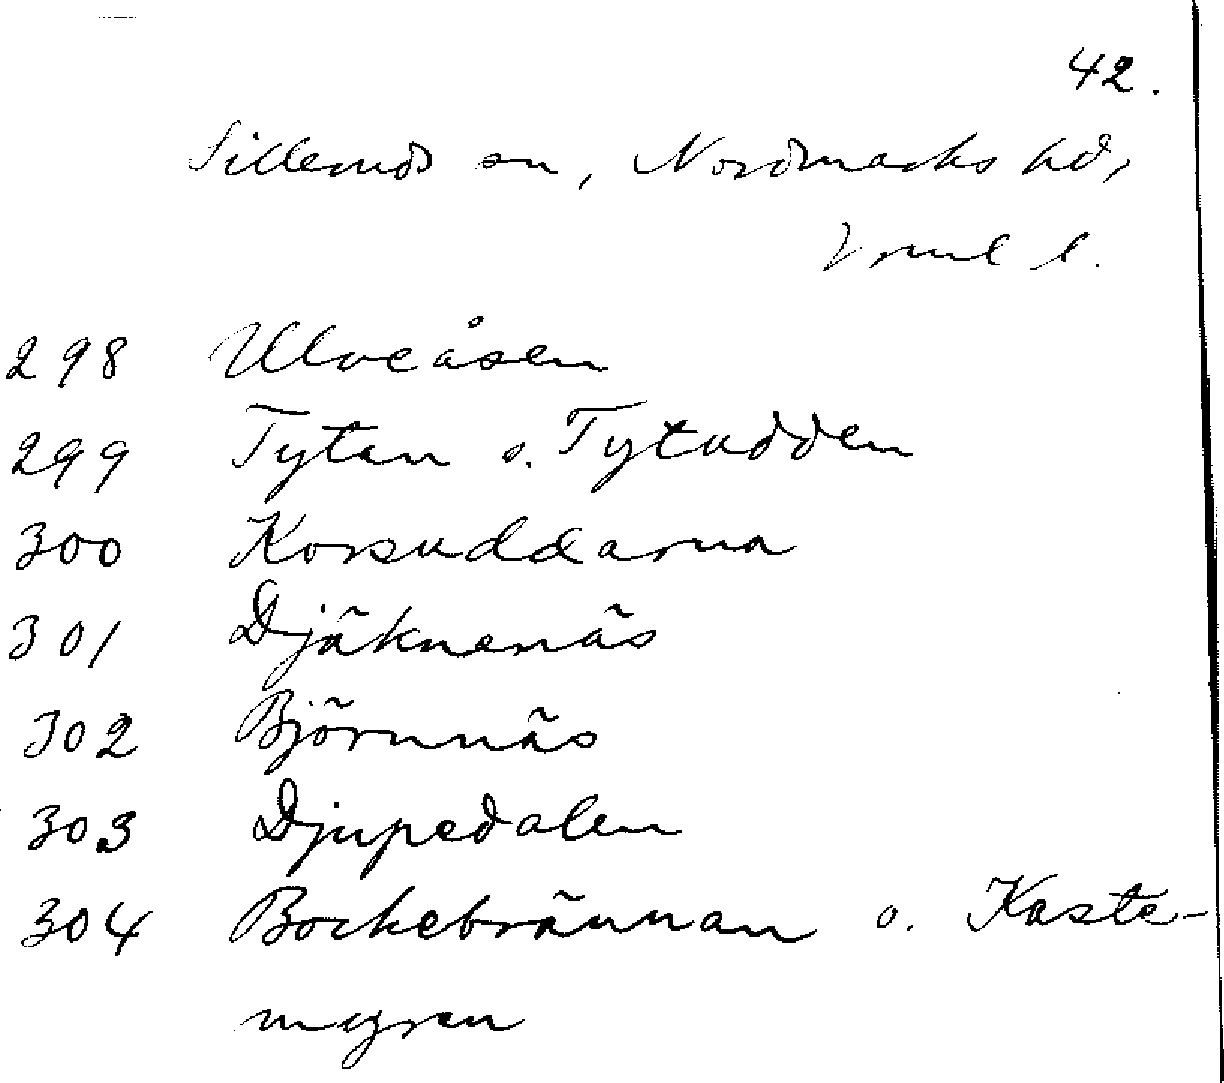 42.
Silleruds sn, Nordmarks hd,
Vrml l.
298 Ulveåsen
299 Tytan o. Tytudden
300 Korsuddarna
301 Djäknenäs
302 Björnnäs
303 Djupedalen
304 Bockebrännan o. Kaste-
myren